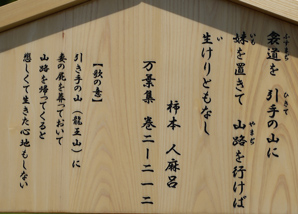 衾道を 引手の山に
妹を置きて 山路を行けば
生けりともなし
柿本 人麻呂
万葉集 巻二ー二一二
【歌の意】
引き手の山(龍王山)に
妻の屍を葬っておいて
山路を帰ってくると
悲しくて生きた心地もしない